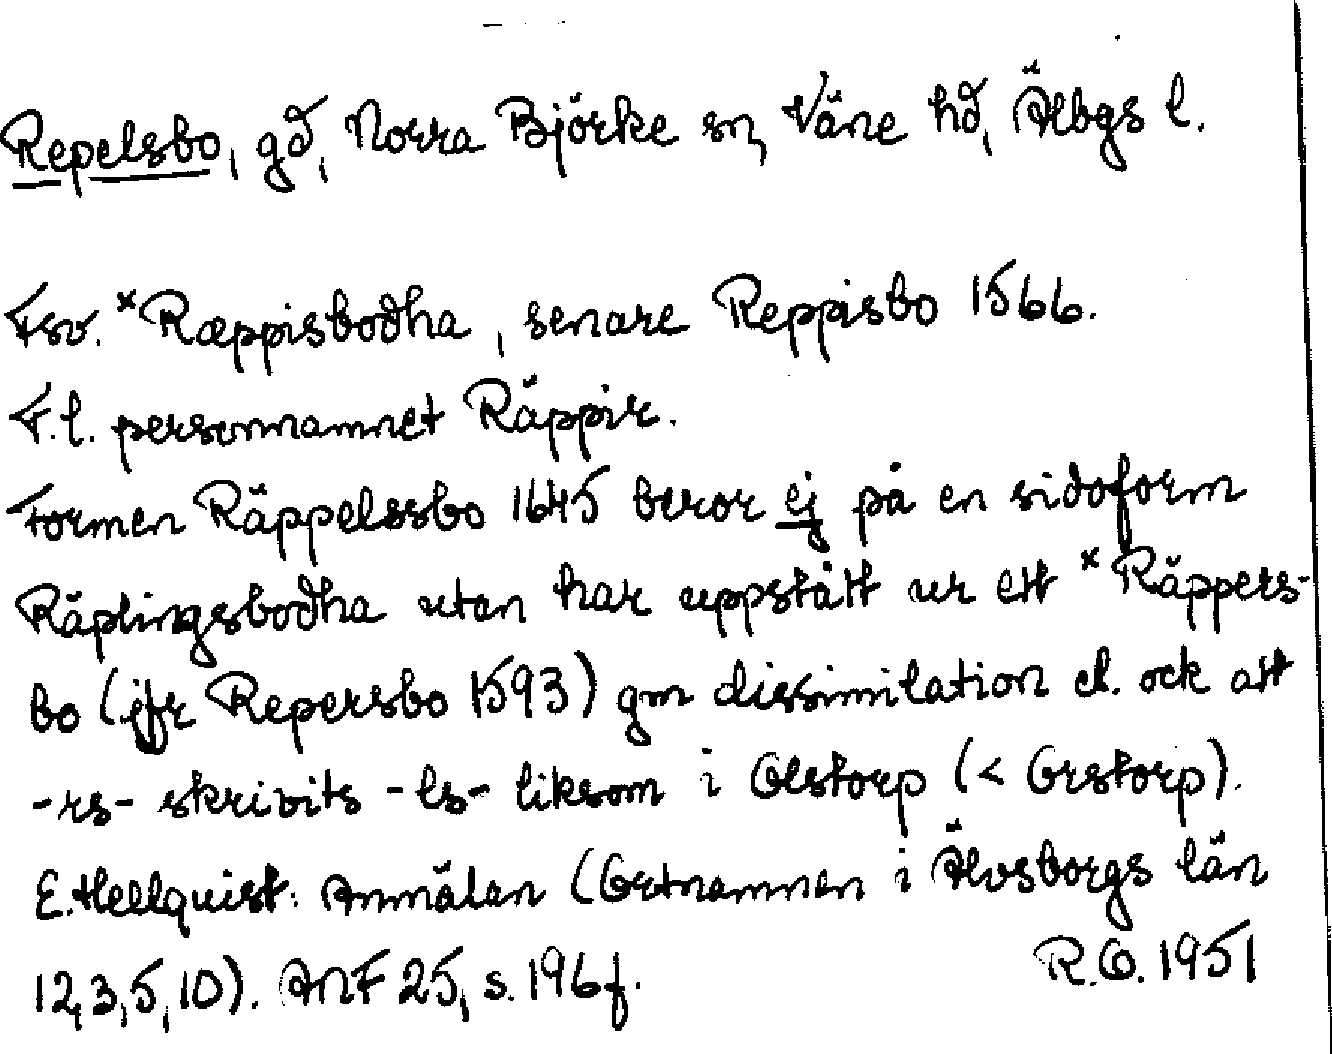 Repelsbo, gd, Norra Björke sn, Väne hd, Älvbgs l.
Fsv. *Ræppisbodha, senare Reppisbo 1566.
F.l. personnamnet Räppir.
Formen Räppelssbo 1645 beror ej på en sidoform
Räplingsbodha utan har uppstått ur ett *Räppers-
bo (jfr Repersbo 1593) gm dissimilation el. ock att
-rs- skrivits -ls- liksom i Olstorp (< Orstorp).
E. Hellquist: Anmälan (Ortnamnen i Älvsborgs län
12,3,5,10). ANF 25, s. 196 f. R.O. 1951